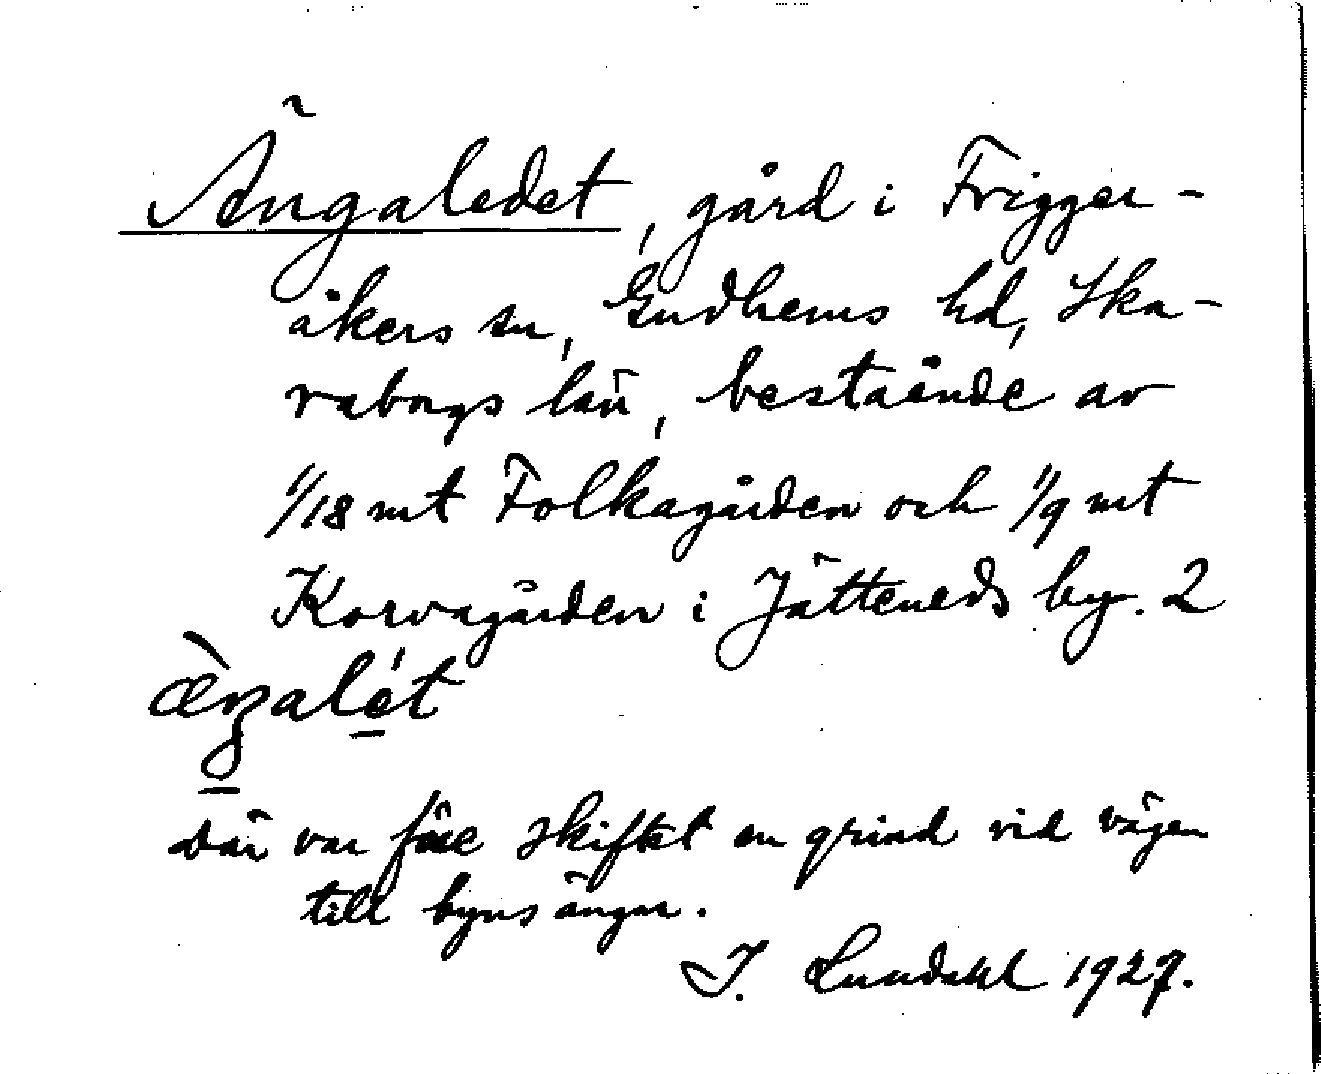 Ängaledet, gård i Frigger-
åkers sn, Gudhems hd, Ska-
raborgs län, bestående av
1/18 mt Folkagården och 1/9 mt
Korvagården i Jätteneds by. 2
æ̀ŋalét
där var före skiftet en grind vid vägen
till byns ängar.
I. Lundahl 1927.